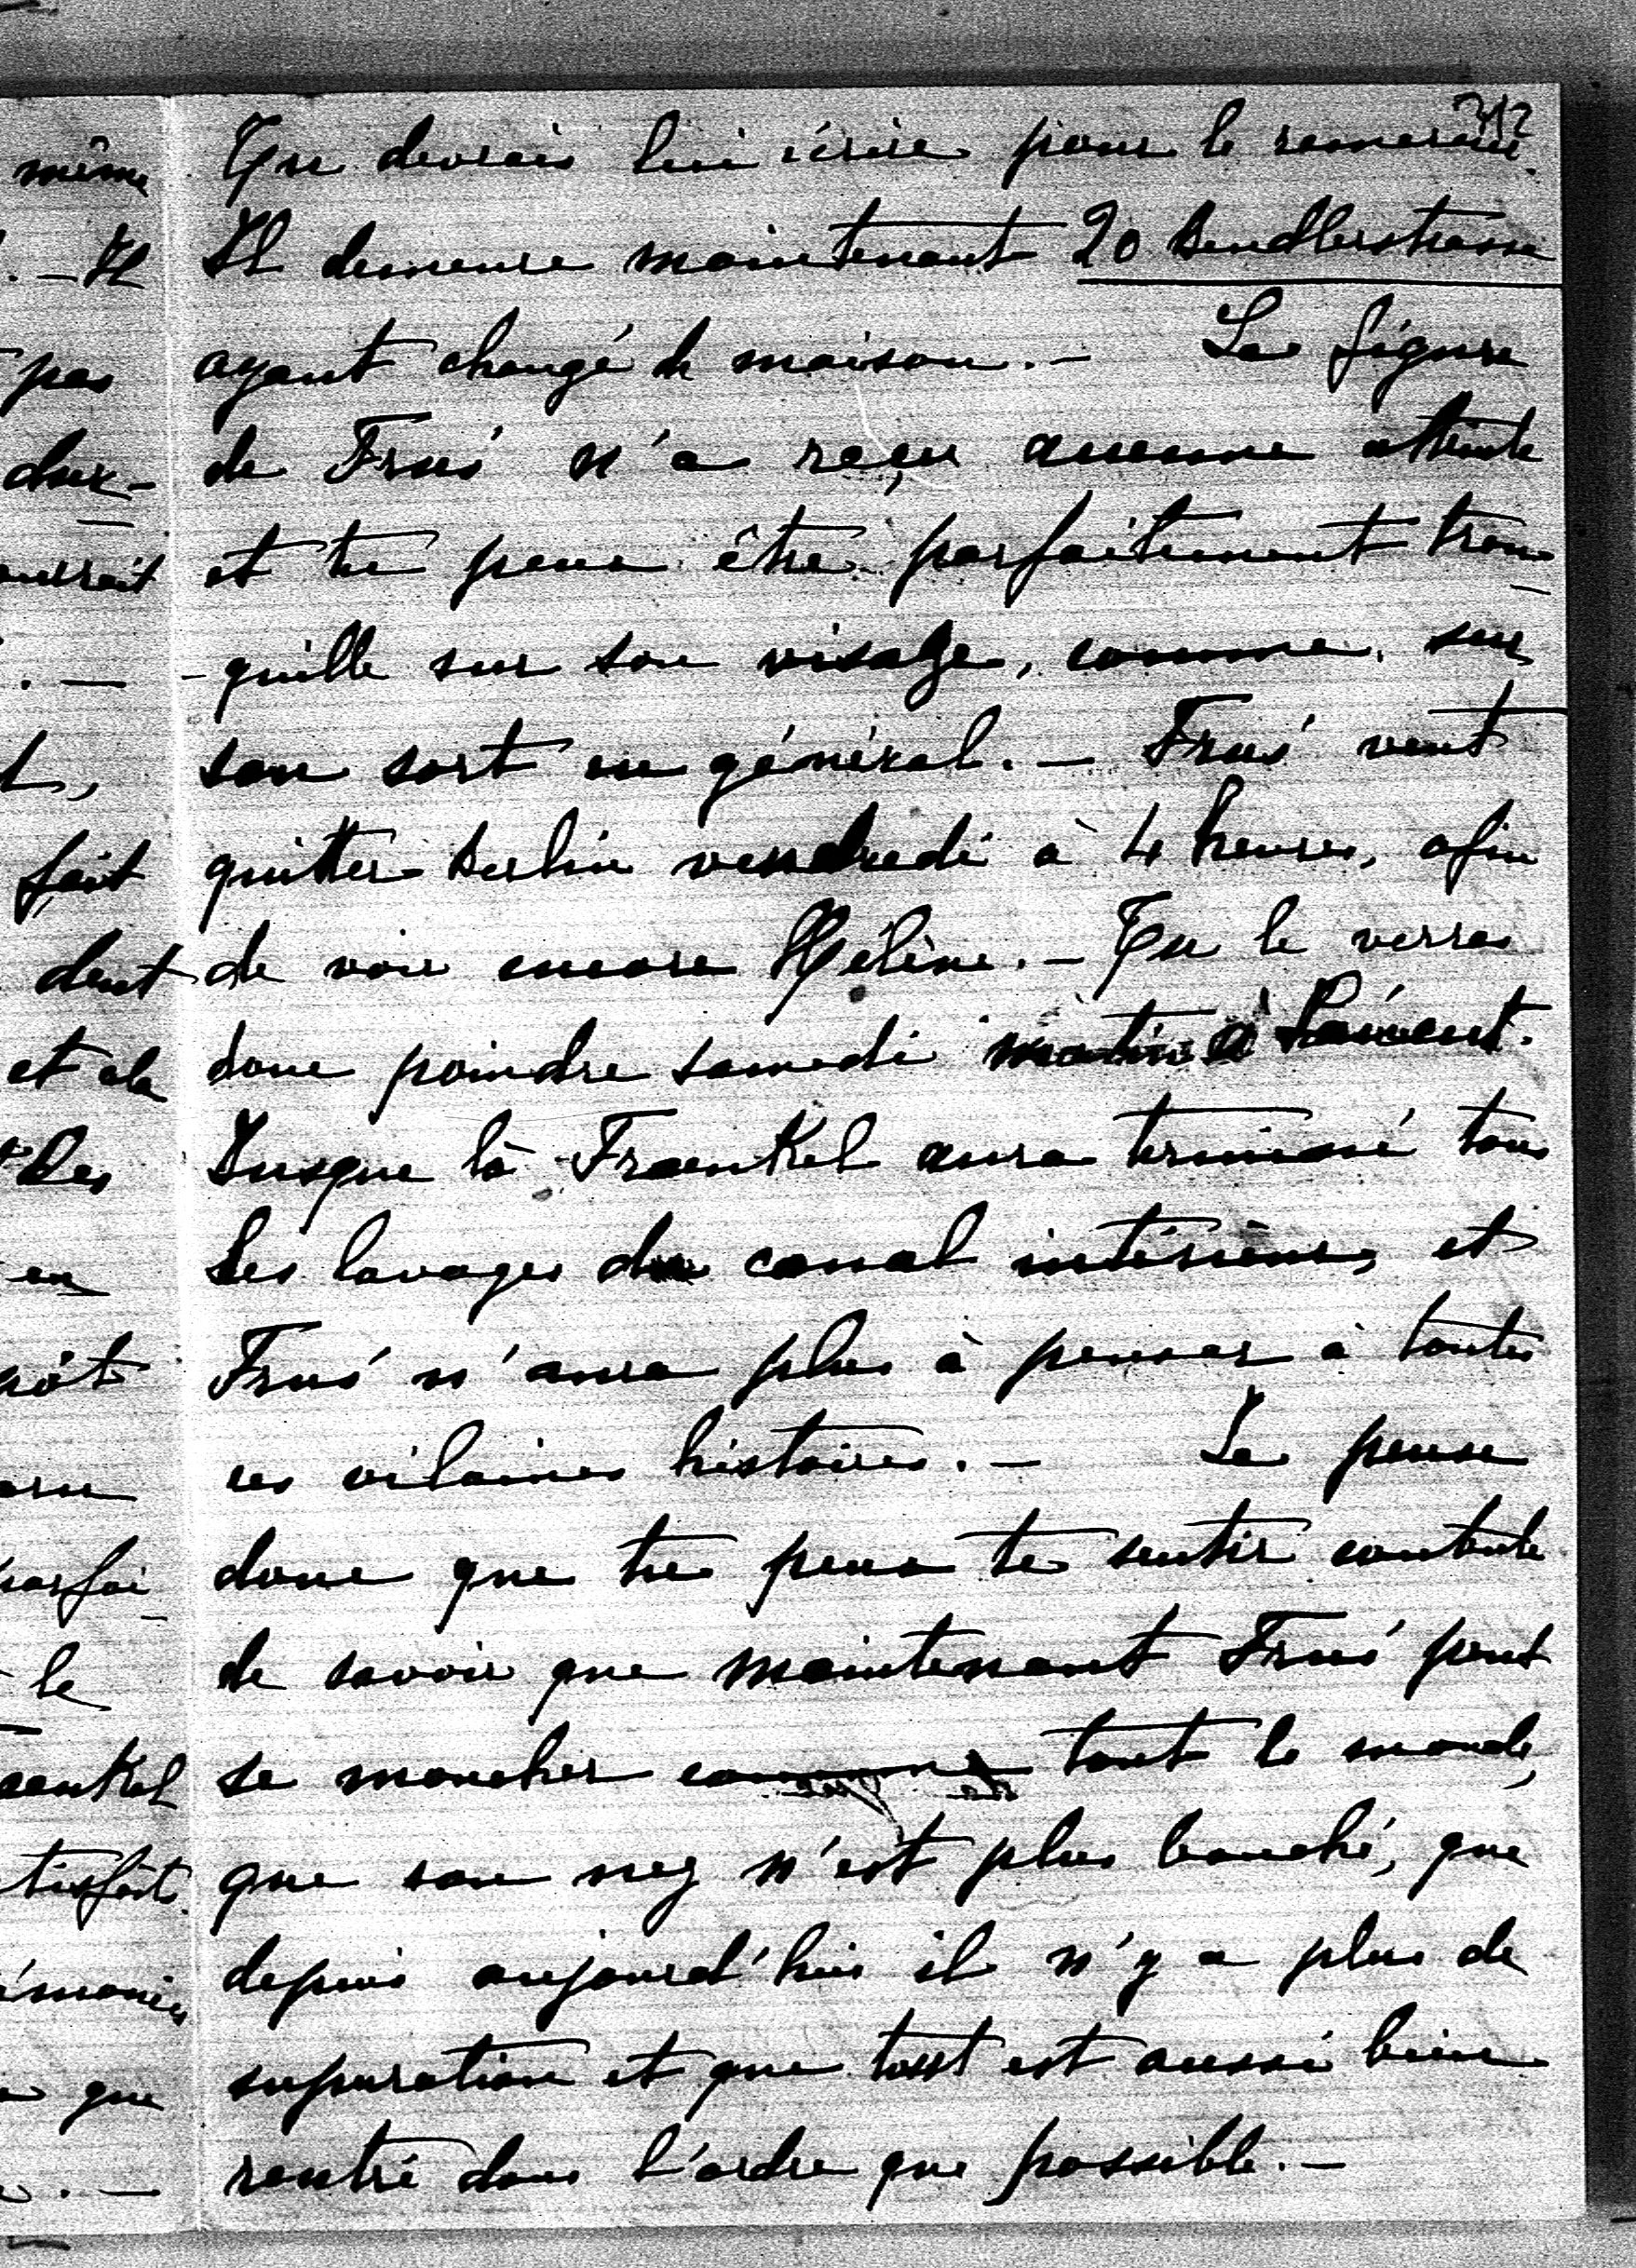 Tu devrais lui écrire pour le remercier.
Il demeure maintenant 20 Bendlerstrasse
ayant changé de maison. — La figure
de Frusi n'a reçu aucune atteinte
et tu peux être parfaitement tran-
-quille sur son visage, comme sur
son sort en général. — Frusi veut
quitter Berlin vendredi à 4 heures, afin
de voir encore Hélène. — Tu le verras
donc poindre samedi matin à
Jusque là Fraenkel aura terminé tous
les lavages du canal intérieur, et
Frusi n'aura plus à penser à toutes
ces vilaines histoires. — Je pense
donc que tu peux te sentir contente
de savoir que maintenant Frusi peut
se moucher comme tout le monde,
que son nez n'est plus bouché, que
depuis aujourd'hui il n'y a plus de
supuration et que tout est aussi bien
rentré dans l'ordre que possible. —